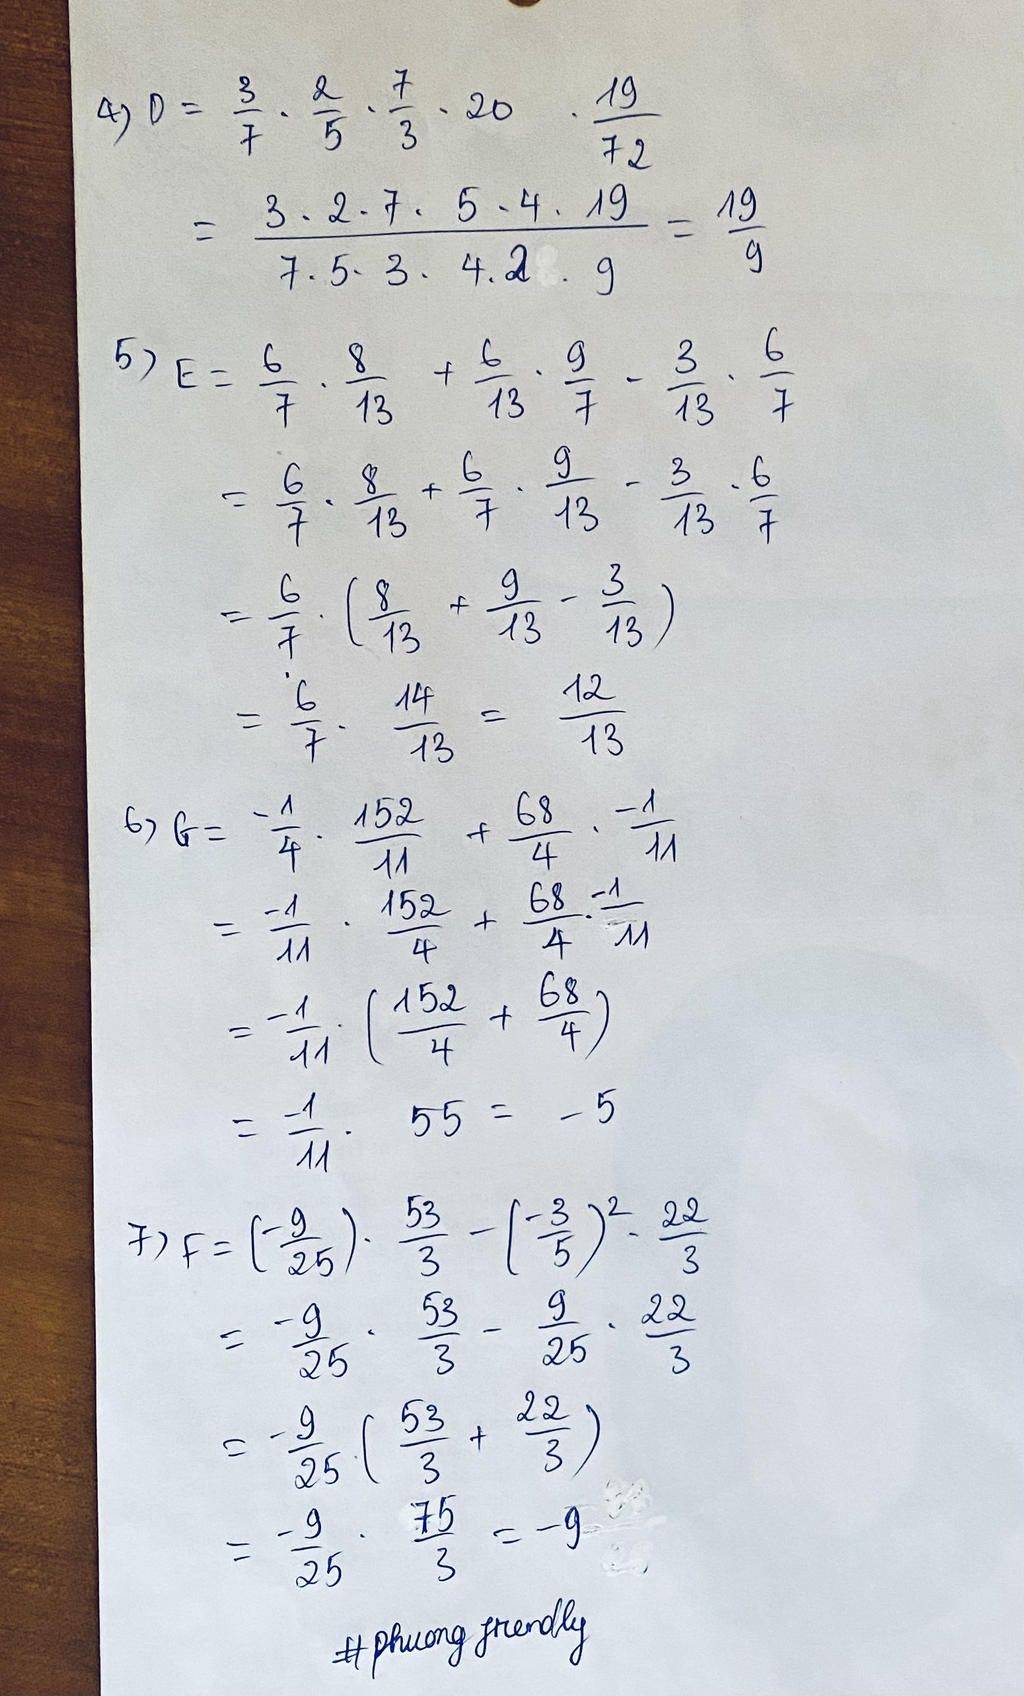 4) D = 3/7 . 2/5 . 7/3 . 20 . 19/72
= 3.2.7.5.4.19 / 7.5.3.4.2.9 = 19/9
5) E = 6/7 . 8/13 + 6/13 . 9/7 - 3/13 . 6/7
= 6/7 . 8/13 + 6/7 . 9/13 - 3/13 . 6/7
= 6/7 . (8/13 + 9/13 - 3/13)
= 6/7 . 14/13 = 12/13
6) G = -1/4 . 152/11 + 68/4 . -1/11
= -1/11 . 152/4 + 68/4 . -1/11
= -1/11 . (152/4 + 68/4)
= -1/11 . 55 = -5
7) F = (-9/25) . 53/3 - (-3/5)² . 22/3
= -9/25 . 53/3 - 9/25 . 22/3
= -9/25 . (53/3 + 22/3)
= -9/25 . 75/3 = -9
#phuong friendly